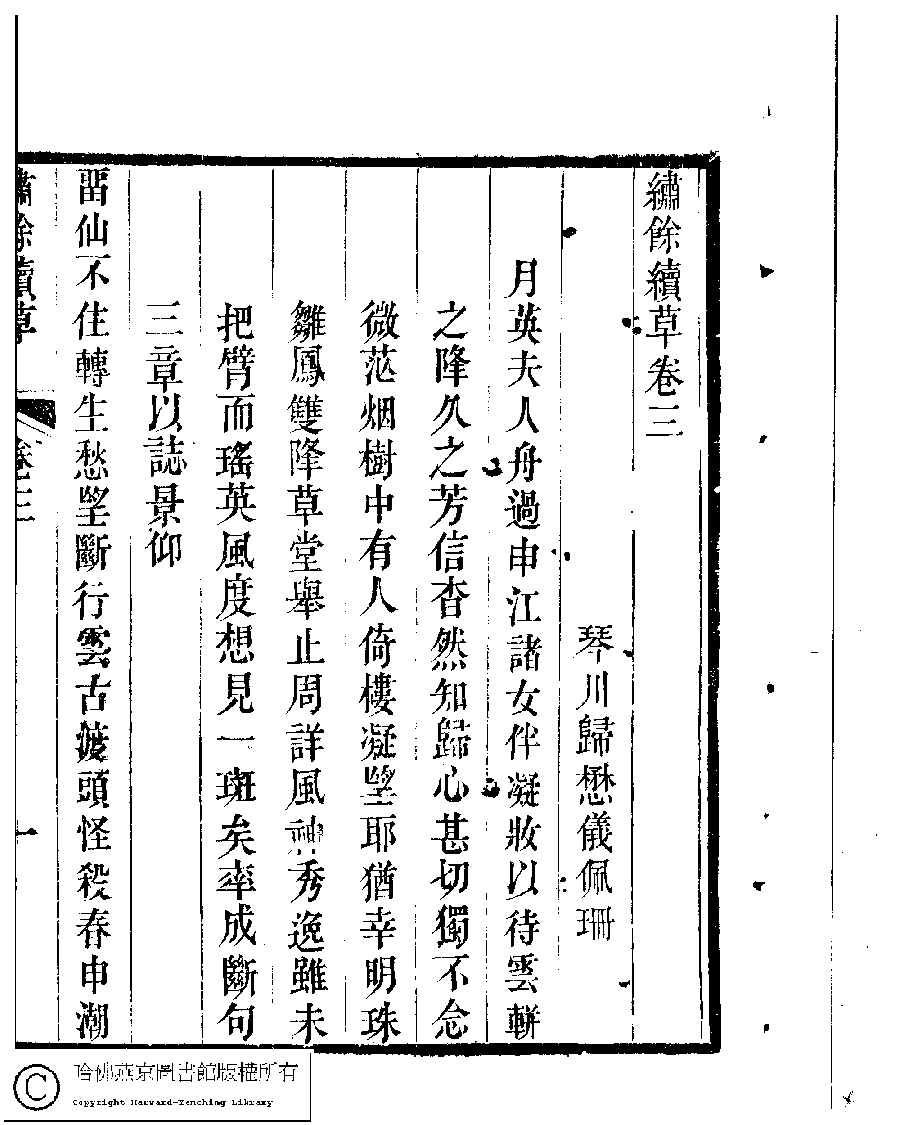 繡餘續草卷三
琴川歸懋儀佩珊
月英夫人舟過申江諸女伴凝妝以待雲輧
之降久之芳信杳然知歸心甚切獨不念
微茫烟樹中有人倚樓凝望耶猶幸明珠
雛鳳雙降草堂舉止周詳風神秀逸雖未
把臂而瑤英風度想見一斑矣率成斷句
三章以誌景仰
畱仙不住轉生愁望斷行雲古渡頭怪殺春申潮
繡餘續草 卷三 一
哈佛燕京圖書館版權所有
Copyright Harvard-Yenching Library